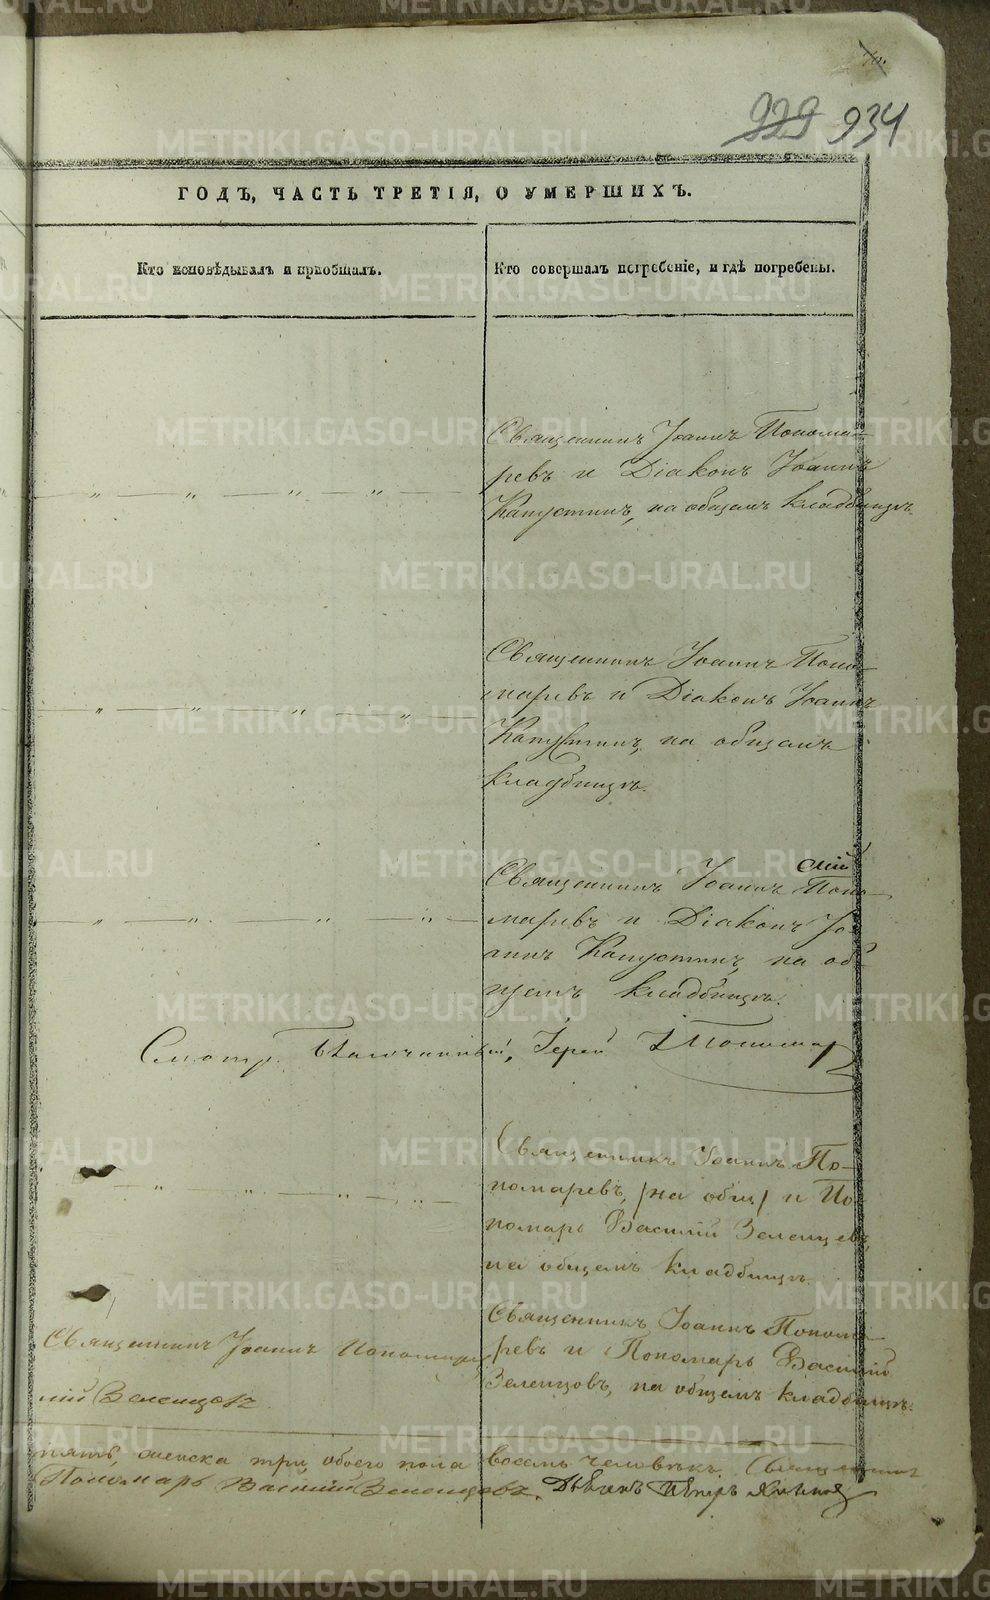 929 934
ГОДЪ, ЧАСТЬ ТРЕТІЯ, О УМЕРШИХЪ.
Кто исповѣдывалъ и пріобщалъ.
Кто совершалъ погребеніе, и гдѣ погребены.
Священникъ Іоаннъ Понома-
ревъ и Діаконъ Іоаннъ
Капустинъ, на общемъ кладбищѣ.
Священникъ Іоаннъ Поно-
маревъ и Діаконъ Іоаннъ
Капустинъ, на общемъ
кладбищѣ.
Священникъ Іоаннъ Поно-
маревъ и Діаконъ Іо-
аннъ Капустинъ, на об-
щемъ кладбищѣ.
Смотр. Благочинный, Іерей І Пономар
Священникъ Іоаннъ По-
номаревъ, /на общ/ и По-
номарь Василій Зеленцовъ,
на общемъ кладбищѣ.
Священникъ Іоаннъ Пономар
лій Зеленцовъ
Священникъ Іоаннъ Понома-
ревъ и Пономарь Василій
Зеленцовъ, на общемъ кладбищѣ.
пять, женска три, обоего пола восемь человѣкъ. Священникъ
Пономарь Василій Зеленцовъ. Дьяконъ Петръ
METRIKI.GASO-URAL.RU